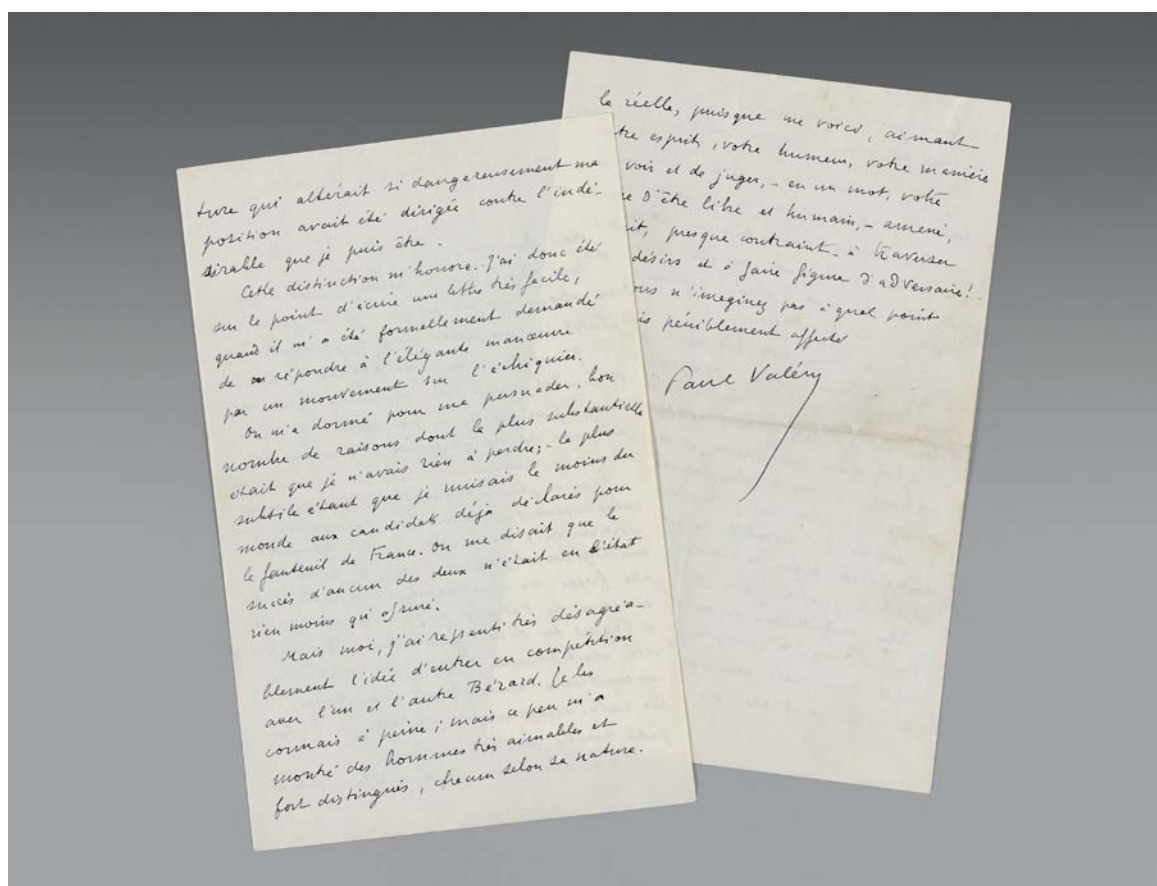 ture qui altérait si dangereusement ma
position avait été dirigée contre l'indé-
sirable que je puis être.
Cette distinction m'honore. J'ai donc été
sur le point d'écrire une lettre très facile,
quand il m'a été formellement demandé
de répondre à l'élégante manœuvre
par un mouvement sur l'échiquier.
On m'a donné pour me persuader, bon
nombre de raisons dont la plus substantielle
était que je n'avais rien à perdre; - la plus
subtile étant que je nuisais le moins du
monde aux candidats déjà déclarés pour
le fauteuil de France. On me disait que le
succès d'aucun des deux n'était en l'état
rien moins qu'assuré.
Mais moi, j'ai ressenti très désagréa-
blement l'idée d'entrer en compétition
avec l'un et l'autre Bérard. Je les
connais à peine; mais ce peu m'a
montré des hommes très aimables et
fort distingués, chacun selon sa nature.
le réelle, puisque me voici, aimant
tre esprit, votre humeur, votre manière
voir et de juger, - en un mot, votre
e d'être libre et humain, - amené,
it, presque contraint - à traverser
désirs et à faire figure d'adversaire!
ous n'imaginez pas à quel point
is péniblement affecté
Paul Valéry